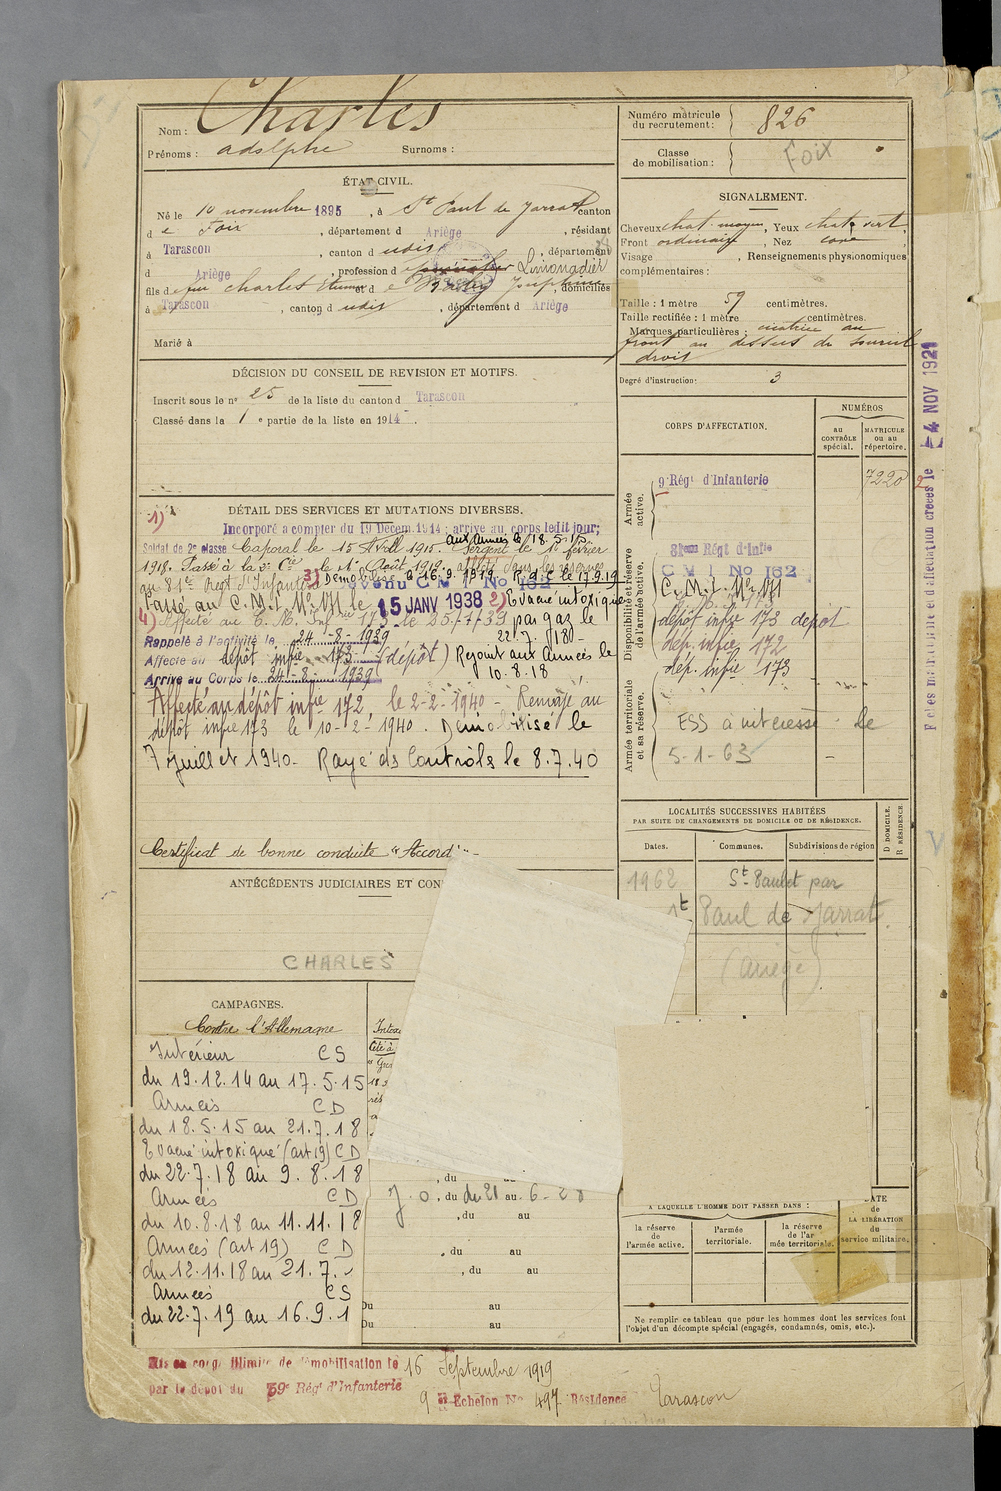 Nom : Charles
Prénoms : adolphe Surnoms :
ÉTAT CIVIL.
Né le 10 novembre 1895, à St Paul de Jarrat canton
d e Foix, département d Ariège, résidant
à Tarascon, canton d udit, département
d Ariège, profession d Limonadier
fils d e feu charles Etienne et d e Josephine, domiciliés
à Tarascon, canton d udit, département d Ariège
Marié à
DÉCISION DU CONSEIL DE REVISION ET MOTIFS.
Inscrit sous le n° 25 de la liste du canton d Tarascon
Classé dans la 1 e partie de la liste en 1914.
DÉTAIL DES SERVICES ET MUTATIONS DIVERSES.
1) Incorporé a compter du 19 Décem. 1914 : arrivé au corps ledit jour;
aux Armées le 18.5.15
Soldat de 2e classe Caporal le 15 Avril 1915. Sergent le 1er février
1918. Passé à la 3e Cie le 1er Août 1919. affecté dans les réserves
au 81e Régt d'Infanterie 3) Démobilisé le 16.9.1919 R.d.C le 17.9.19
Passé au C.M.I. N° 162 le 15 JANV 1938 2) Evacué intoxiqué
4) Affecté au C.M. Infrie 173 le 25/7/39 par gaz le
Rappelé à l'activité le 24-8-1939 22.7.1918
Affecté au dépôt infie 173 (dépôt) Rejoint aux Armées le
Arrivé au Corps le 24-8-1939 10.8.18
Affecté au dépôt infie 172, le 2-2-1940 - Remise au
dépôt infie 173 le 10-2-1940. Démobilisé le
7 Juillet 1940 - Rayé ds Contrôls le 8.7.40
Certificat de bonne conduite "Accordé" -
ANTÉCÉDENTS JUDICIAIRES ET CON
CHARLES
CAMPAGNES.
Contre l'Allemagne
Intérieur CS
du 19.12.14 au 17.5.15
Armées CD
du 18.5.15 au 21.7.18
Evacué intoxiqué (art 19) CD
du 22.7.18 au 9.8.18
Armées CD
du 10.8.18 au 11.11.18
Armées (art 19) CD
du 12.11.18 au 21.7.
Armées CS
du 22.7.19 au 16.9.1
Intox
Cité à
, du
J.O. du du 21 au 6-28
, du au
, du au
, du au
Du au
Du au
Numéro matricule du recrutement : 826
Classe de mobilisation : Foix
SIGNALEMENT.
Cheveux chat. moyen, Yeux chat. vert
Front ordinaire, Nez cave
Visage , Renseignements physionomiques
complémentaires :
Taille : 1 mètre 59 centimètres.
Taille rectifiée : 1 mètre centimètres.
Marques particulières : cicatrice au
front au dessus du sourcil
droit
Degré d'instruction : 3
CORPS D'AFFECTATION.
NUMÉROS
au CONTRÔLE spécial.
MATRICULE ou au répertoire.
Armée active.
9e Régt d'Infanterie 7220
Disponibilité et réserve de l'armée active.
81eme Régt d'Infie
C M I No 162
dépôt infie 173 dépôt
dép. infie 172
dép. Infie 173
Armée territoriale et sa réserve.
ESS à intéressé le
5-1-63
4 NOV 1921
LOCALITÉS SUCCESSIVES HABITÉES
PAR SUITE DE CHANGEMENTS DE DOMICILE OU DE RÉSIDENCE.
Dates. Communes. Subdivisions de région
D DOMICILE.
R RÉSIDENCE.
1962 St Paulet par
St Paul de Jarrat
(Ariège)
A LAQUELLE L'HOMME DOIT PASSER DANS :
la réserve de l'armée active.
l'armée territoriale.
la réserve de l'armée territoriale.
DATE de LA LIBÉRATION du service militaire.
Ne remplir ce tableau que pour les hommes dont les services font
l'objet d'un décompte spécial (engagés, condamnés, omis, etc.).
Mis en congé illimité de démobilisation le 16 Septembre 1919
par le dépôt du 59e Régt d'Infanterie
9 Echelon No 497 Résidence Tarascon